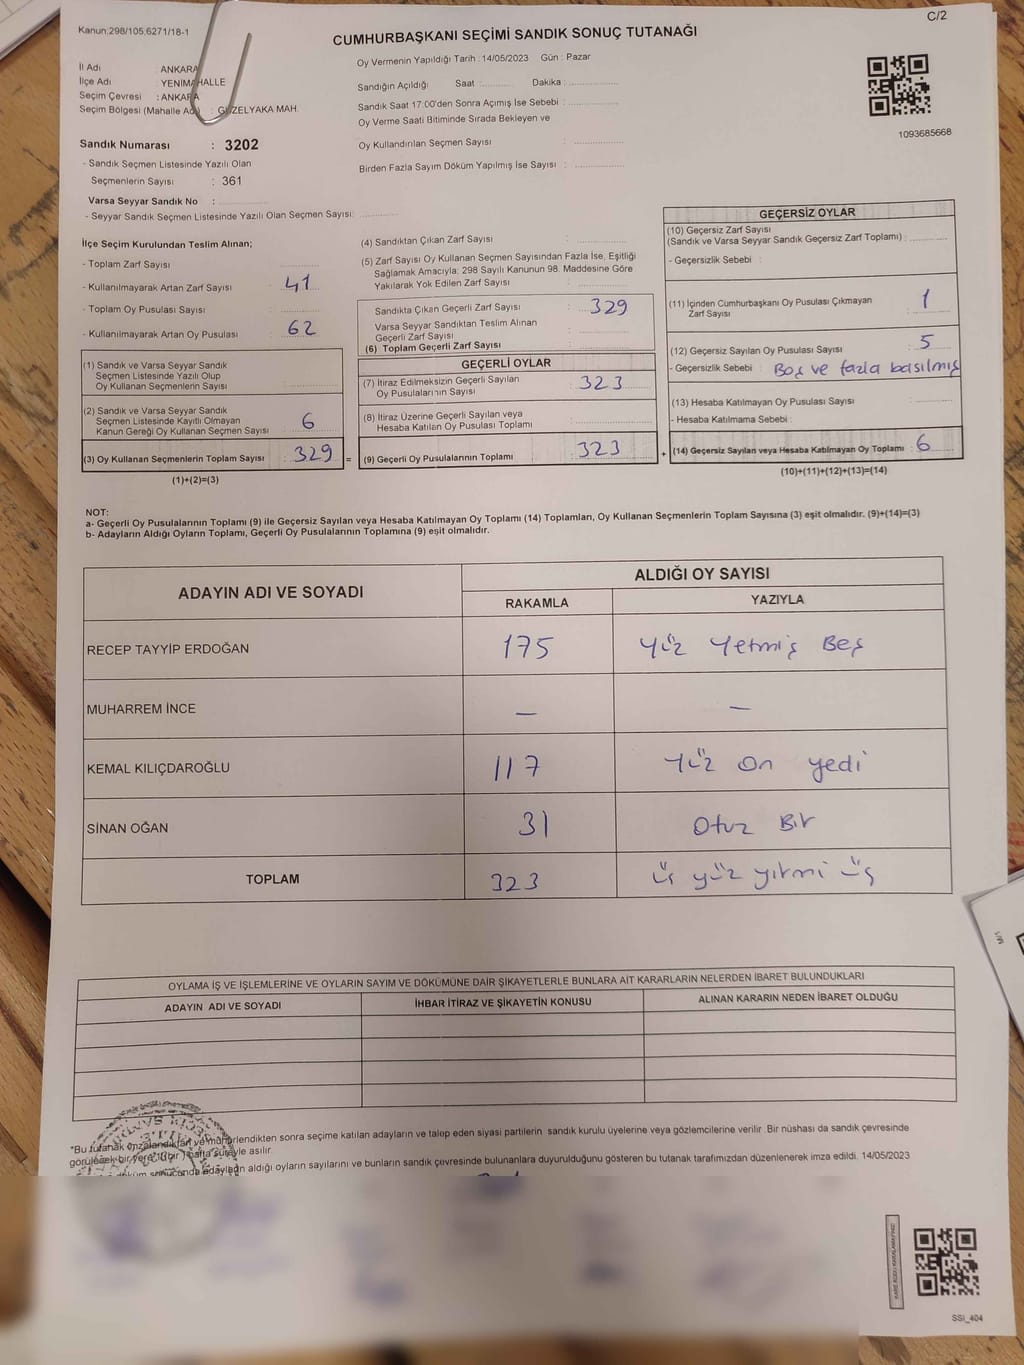 Kanun:298/105,6271/18-1
C/2
CUMHURBAŞKANI SEÇİMİ SANDIK SONUÇ TUTANAĞI
İl Adı : ANKARA
İlçe Adı : YENİMAHALLE
Seçim Çevresi : ANKARA
Seçim Bölgesi (Mahalle Adı) : GÜZELYAKA MAH.
Oy Vermenin Yapıldığı Tarih : 14/05/2023 Gün : Pazar
Sandığın Açıldığı Saat Dakika
Sandık Saat 17.00'den Sonra Açımış İse Sebebi :
Oy Verme Saati Bitiminde Sırada Bekleyen ve
Oy Kullandırılan Seçmen Sayısı :
Birden Fazla Sayım Döküm Yapılmış İse Sayısı :
1093685668
Sandık Numarası : 3202
- Sandık Seçmen Listesinde Yazılı Olan
Seçmenlerin Sayısı : 361
Varsa Seyyar Sandık No :
- Seyyar Sandık Seçmen Listesinde Yazılı Olan Seçmen Sayısı:
İlçe Seçim Kurulundan Teslim Alınan;
- Toplam Zarf Sayısı
- Kullanılmayarak Artan Zarf Sayısı : 41
- Toplam Oy Pusulası Sayısı :
- Kullanılmayarak Artan Oy Pusulası : 62
(1) Sandık ve Varsa Seyyar Sandık
Seçmen Listesinde Yazılı Olup
Oy Kullanan Seçmenlerin Sayısı :
(2) Sandık ve Varsa Seyyar Sandık
Seçmen Listesinde Kayıtlı Olmayan
Kanun Gereği Oy Kullanan Seçmen Sayısı : 6
(3) Oy Kullanan Seçmenlerin Toplam Sayısı : 329
(1)+(2)=(3)
=
(4) Sandıktan Çıkan Zarf Sayısı :
(5) Zarf Sayısı Oy Kullanan Seçmen Sayısından Fazla İse, Eşitliği
Sağlamak Amacıyla; 298 Sayılı Kanunun 98. Maddesine Göre
Yakılarak Yok Edilen Zarf Sayısı :
Sandıkta Çıkan Geçerli Zarf Sayısı : 329
Varsa Seyyar Sandıktan Teslim Alınan
Geçerli Zarf Sayısı :
(6) Toplam Geçerli Zarf Sayısı
GEÇERLİ OYLAR
(7) İtiraz Edilmeksizin Geçerli Sayılan
Oy Pusulalarının Sayısı : 323
(8) İtiraz Üzerine Geçerli Sayılan veya
Hesaba Katılan Oy Pusulası Toplamı :
(9) Geçerli Oy Pusulalarının Toplamı : 323
+
GEÇERSİZ OYLAR
(10) Geçersiz Zarf Sayısı
(Sandık ve Varsa Seyyar Sandık Geçersiz Zarf Toplamı) :
- Geçersizlik Sebebi :
(11) İçinden Cumhurbaşkanı Oy Pusulası Çıkmayan
Zarf Sayısı : 1
(12) Geçersiz Sayılan Oy Pusulası Sayısı : 5
- Geçersizlik Sebebi : Boş ve fazla basılmış
(13) Hesaba Katılmayan Oy Pusulası Sayısı :
- Hesaba Katılmama Sebebi :
(14) Geçersiz Sayılan veya Hesaba Katılmayan Oy Toplamı : 6
(10)+(11)+(12)+(13)=(14)
NOT:
a- Geçerli Oy Pusulalarının Toplamı (9) ile Geçersiz Sayılan veya Hesaba Katılmayan Oy Toplamı (14) Toplamları, Oy Kullanan Seçmenlerin Toplam Sayısına (3) eşit olmalıdır. (9)+(14)=(3)
b- Adayların Aldığı Oyların Toplamı, Geçerli Oy Pusulalarının Toplamına (9) eşit olmalıdır.
ADAYIN ADI VE SOYADI ALDIĞI OY SAYISI
RAKAMLA YAZIYLA
RECEP TAYYİP ERDOĞAN 175 Yüz Yetmiş Beş
MUHARREM İNCE — —
KEMAL KILIÇDAROĞLU 117 Yüz On yedi
SİNAN OĞAN 31 Otuz Bir
TOPLAM 323 üç yüz yirmi üç
OYLAMA İŞ VE İŞLEMLERİNE VE OYLARIN SAYIM VE DÖKÜMÜNE DAİR ŞİKAYETLERLE BUNLARA AİT KARARLARIN NELERDEN İBARET BULUNDUKLARI
ADAYIN ADI VE SOYADI İHBAR İTİRAZ VE ŞİKAYETİN KONUSU ALINAN KARARIN NEDEN İBARET OLDUĞU
*Bu tutanak imzalandıktan ve mühürlendikten sonra seçime katılan adayların ve talep eden siyasi partilerin sandık kurulu üyelerine veya gözlemcilerine verilir. Bir nüshası da sandık çevresinde
görülecek bir yere 1(bir) hafta süreyle asılır.
sonucunda adayların aldığı oyların sayılarını ve bunların sandık çevresinde bulunanlara duyurulduğunu gösteren bu tutanak tarafımızdan düzenlenerek imza edildi. 14/05/2023
SSI_404
M/1